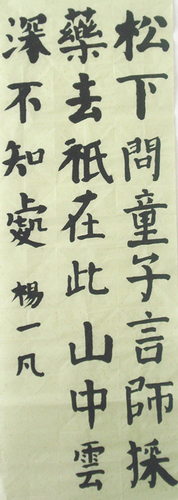 松下問童子言師採
藥去祇在此山中雲
深不知處 楊一凡